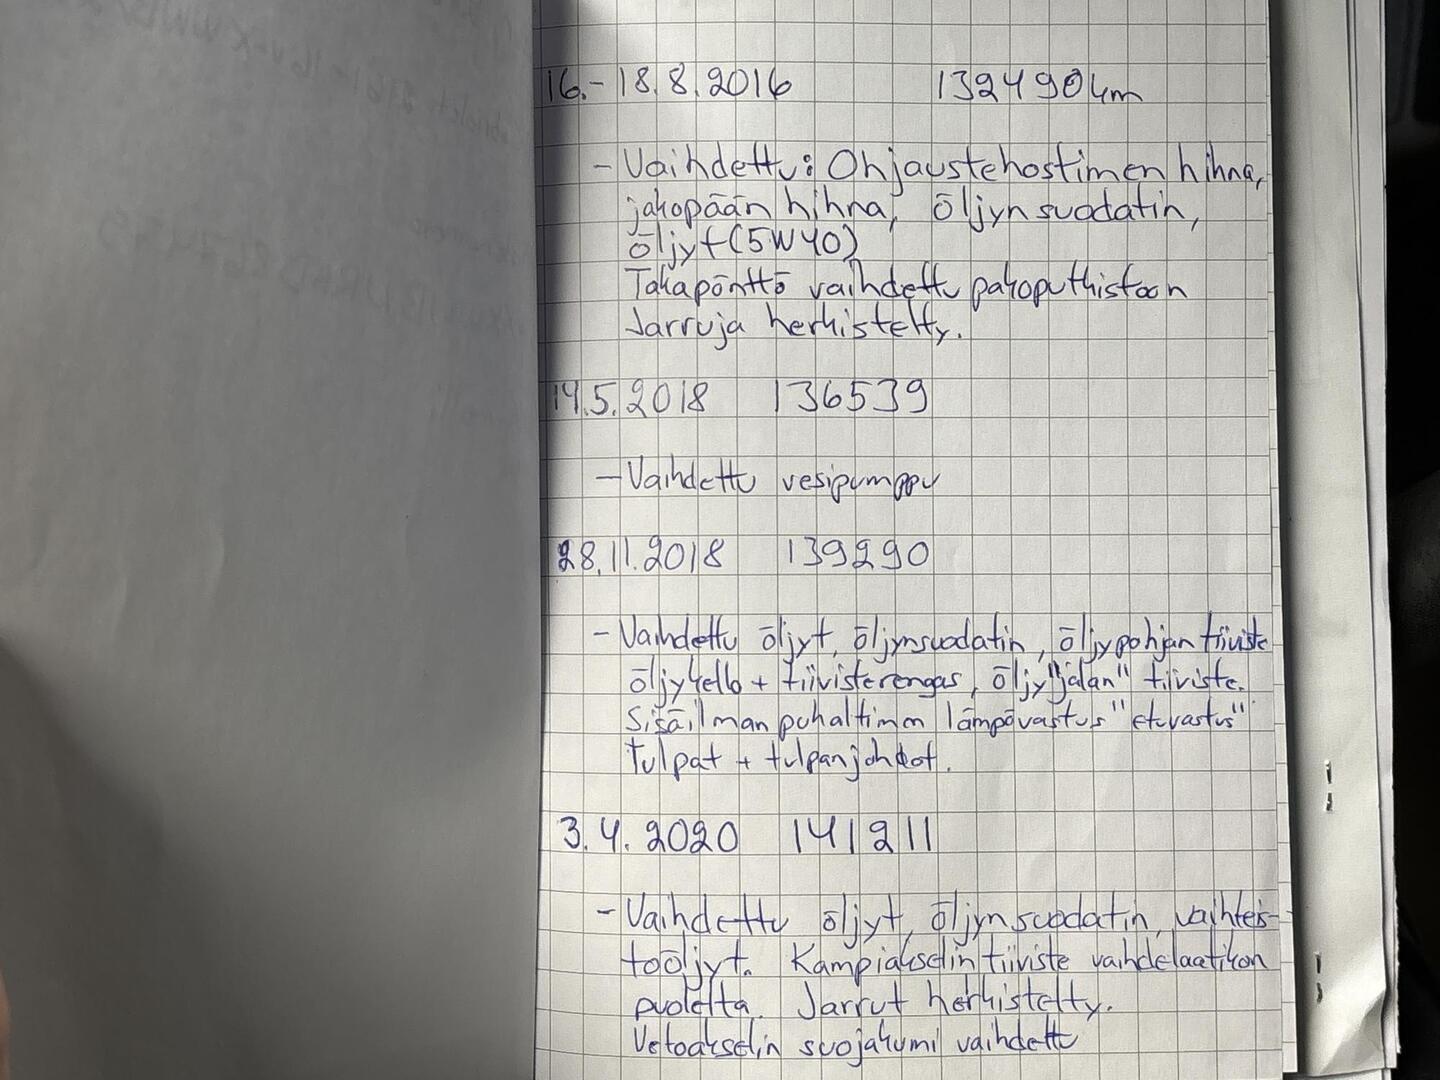 16.-18.8.2016 132490km
- Vaihdettu: Ohjaustehostimen hihna,
jakopään hihna, öljynsuodatin,
öljyt (5W40)
Takapönttö vaihdettu pakoputkistoon
Jarruja herkistelty.
14.5.2018 136539
- Vaihdettu vesipumppu
28.11.2018 139290
- Vaihdettu öljyt, öljynsuodatin, öljypohjan tiiviste
öljykello + tiivisterengas, öljy"jalan" tiiviste.
Sisäilman puhaltimen lämpövastus "etuvastus"
Tulpat + tulpanjohdot.
3.4.2020 141211
- Vaihdettu öljyt, öljynsuodatin, vaihteis-
toöljyt. Kampiakselin tiiviste vaihdelaatikon
puolelta. Jarrut herkistelty.
Vetoakselin suojakumi vaihdettu